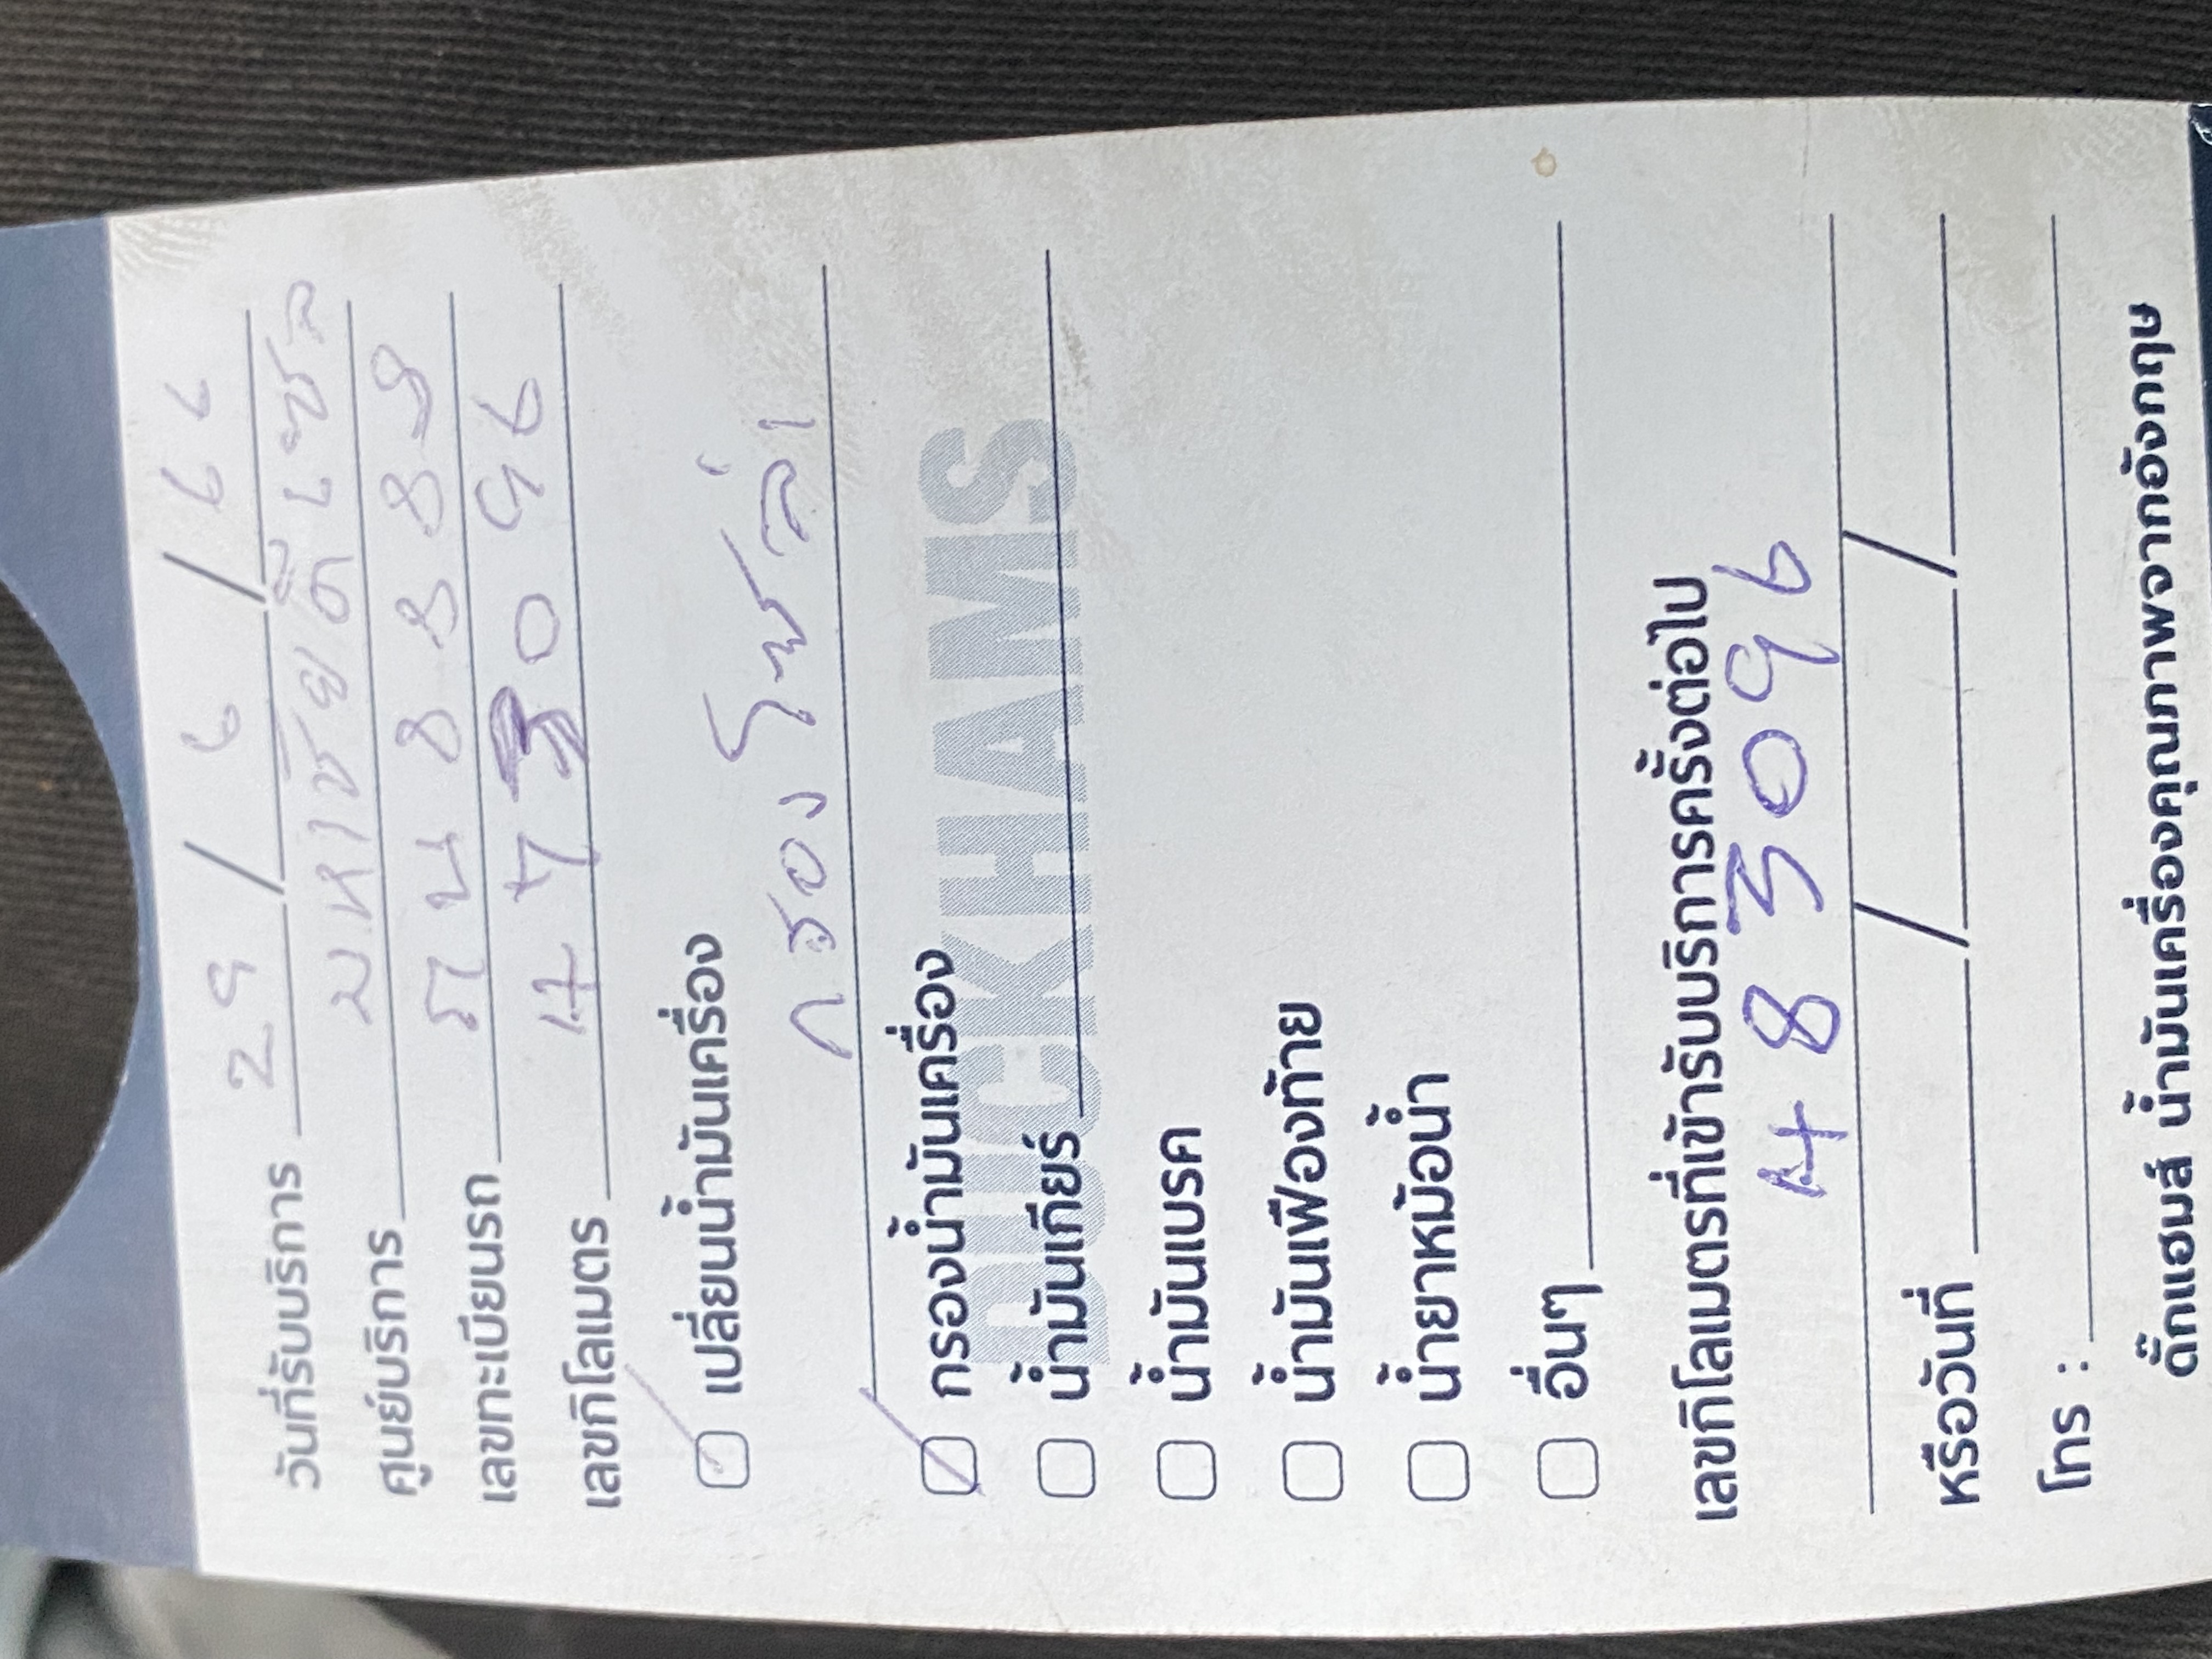 วันที่รับบริการ 29 / 6 / 66
ศูนย์บริการ มหาชัยดีเซล
เลขทะเบียนรถ ฎน 8888
เลขกิโลเมตร 473096
เปลี่ยนน้ำมันเครื่อง
กรองโซล่า
กรองน้ำมันเครื่อง
DUCKHAMS
น้ำมันเกียร์
น้ำมันเบรค
น้ำมันเฟืองท้าย
น้ำยาหม้อน้ำ
อื่นๆ
เลขกิโลเมตรที่เข้ารับบริการครั้งต่อไป
483096
หรือวันที่ / /
โทร :
ดั๊กแฮมส์ น้ำมันเครื่องคุณภาพจากอังกฤษ